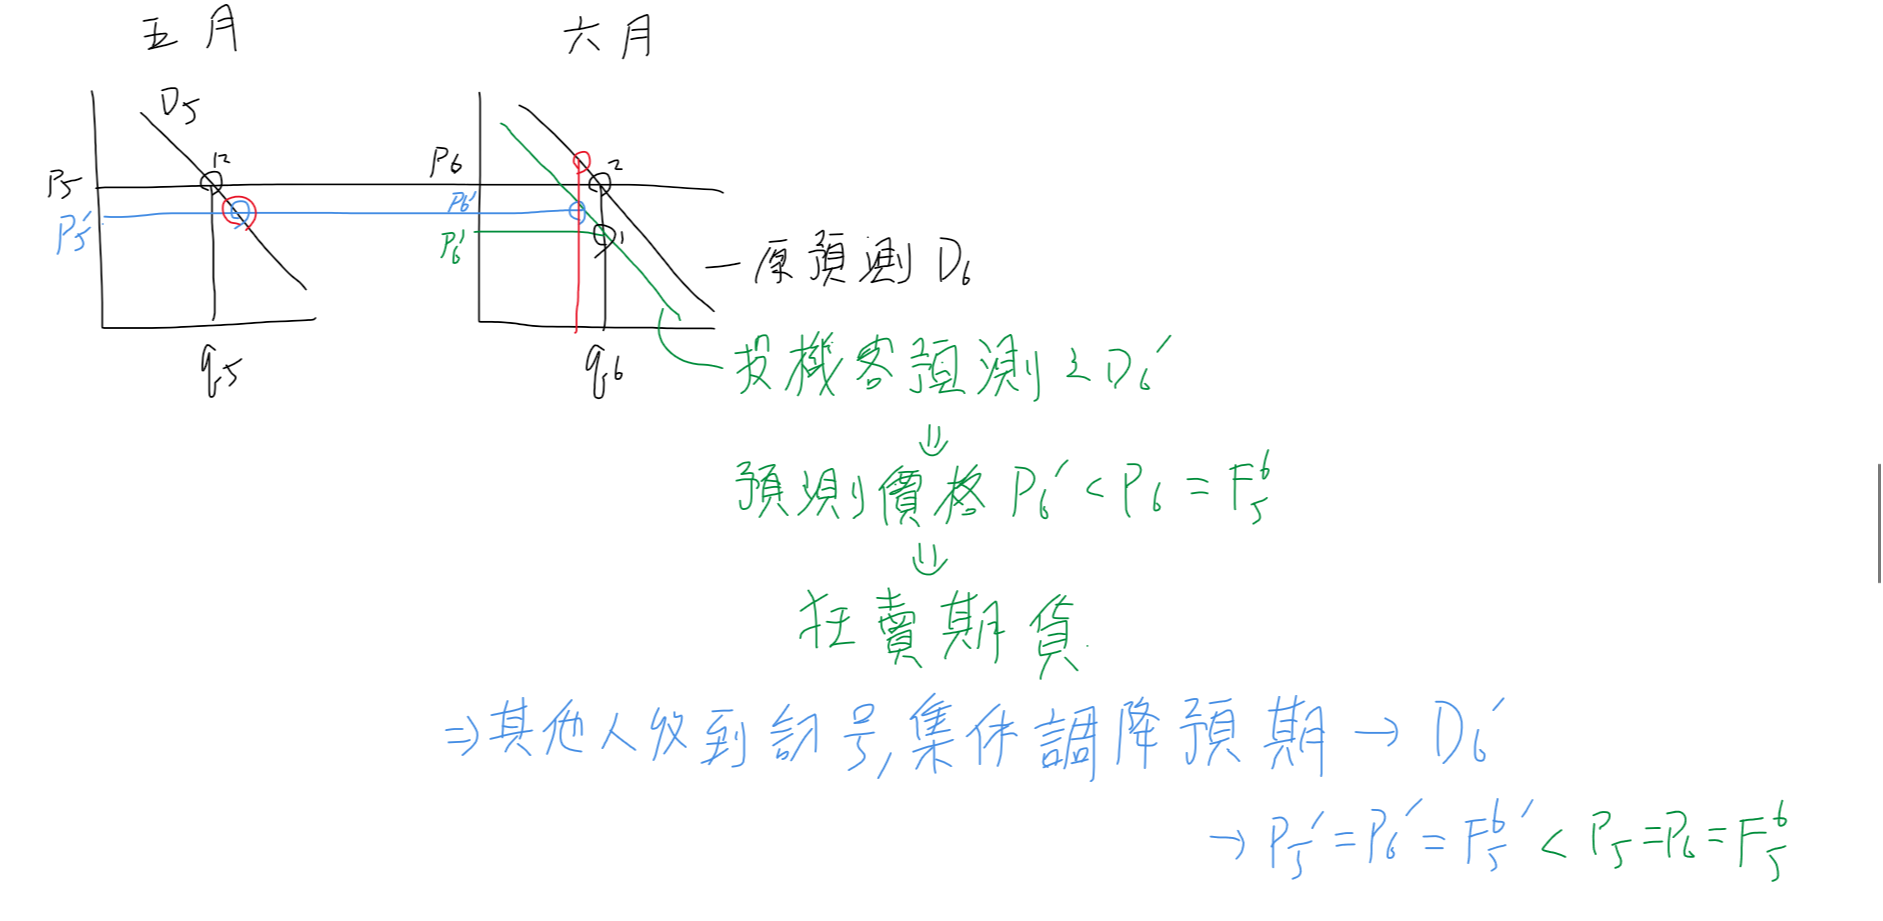 五月
六月
D5
12
P5
P5'
q5
P6
P6'
P6'
2
1
q6
原預測 D6
投機客預測之 D6'
⇓
預測價格 P6' < P6 = F5^6
⇓
狂賣期貨
⇒其他人收到訊号,集体調降預期 → D6'
→ P5' = P6' = F5^6' < P5 = P6 = F5^6